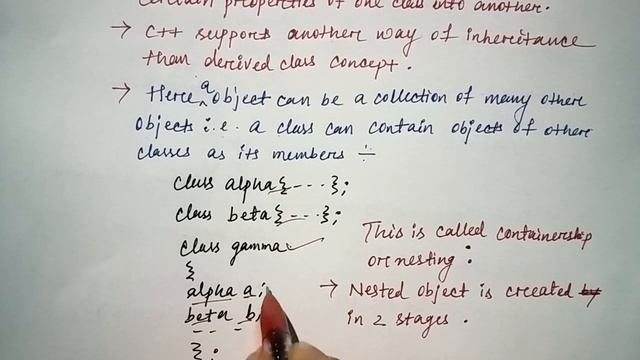 certain properties of one class into another.
→ C++ supports another way of inheritance
than derived class concept.
→ Here a object can be a collection of many other
objects i.e. a class can contain objects of other
classes as its members ÷
class alpha{---};
class beta{---};
class gamma
{
alpha a;
beta b;
-- --
};
This is called containership
or nesting :
→ Nested object is created by
in 2 stages.